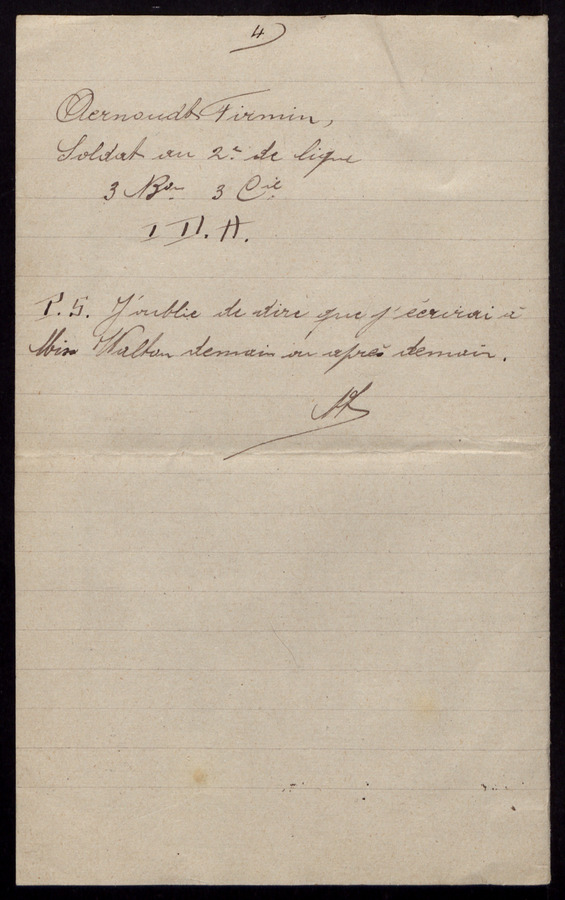 4
Aernoudt Firmin,
Soldat au 2e de ligne
3 Bon 3 Cie
I D. A.
P. S. J'oublie de dire que j'écrirai à
Miss Walton demain ou après demain.
AF